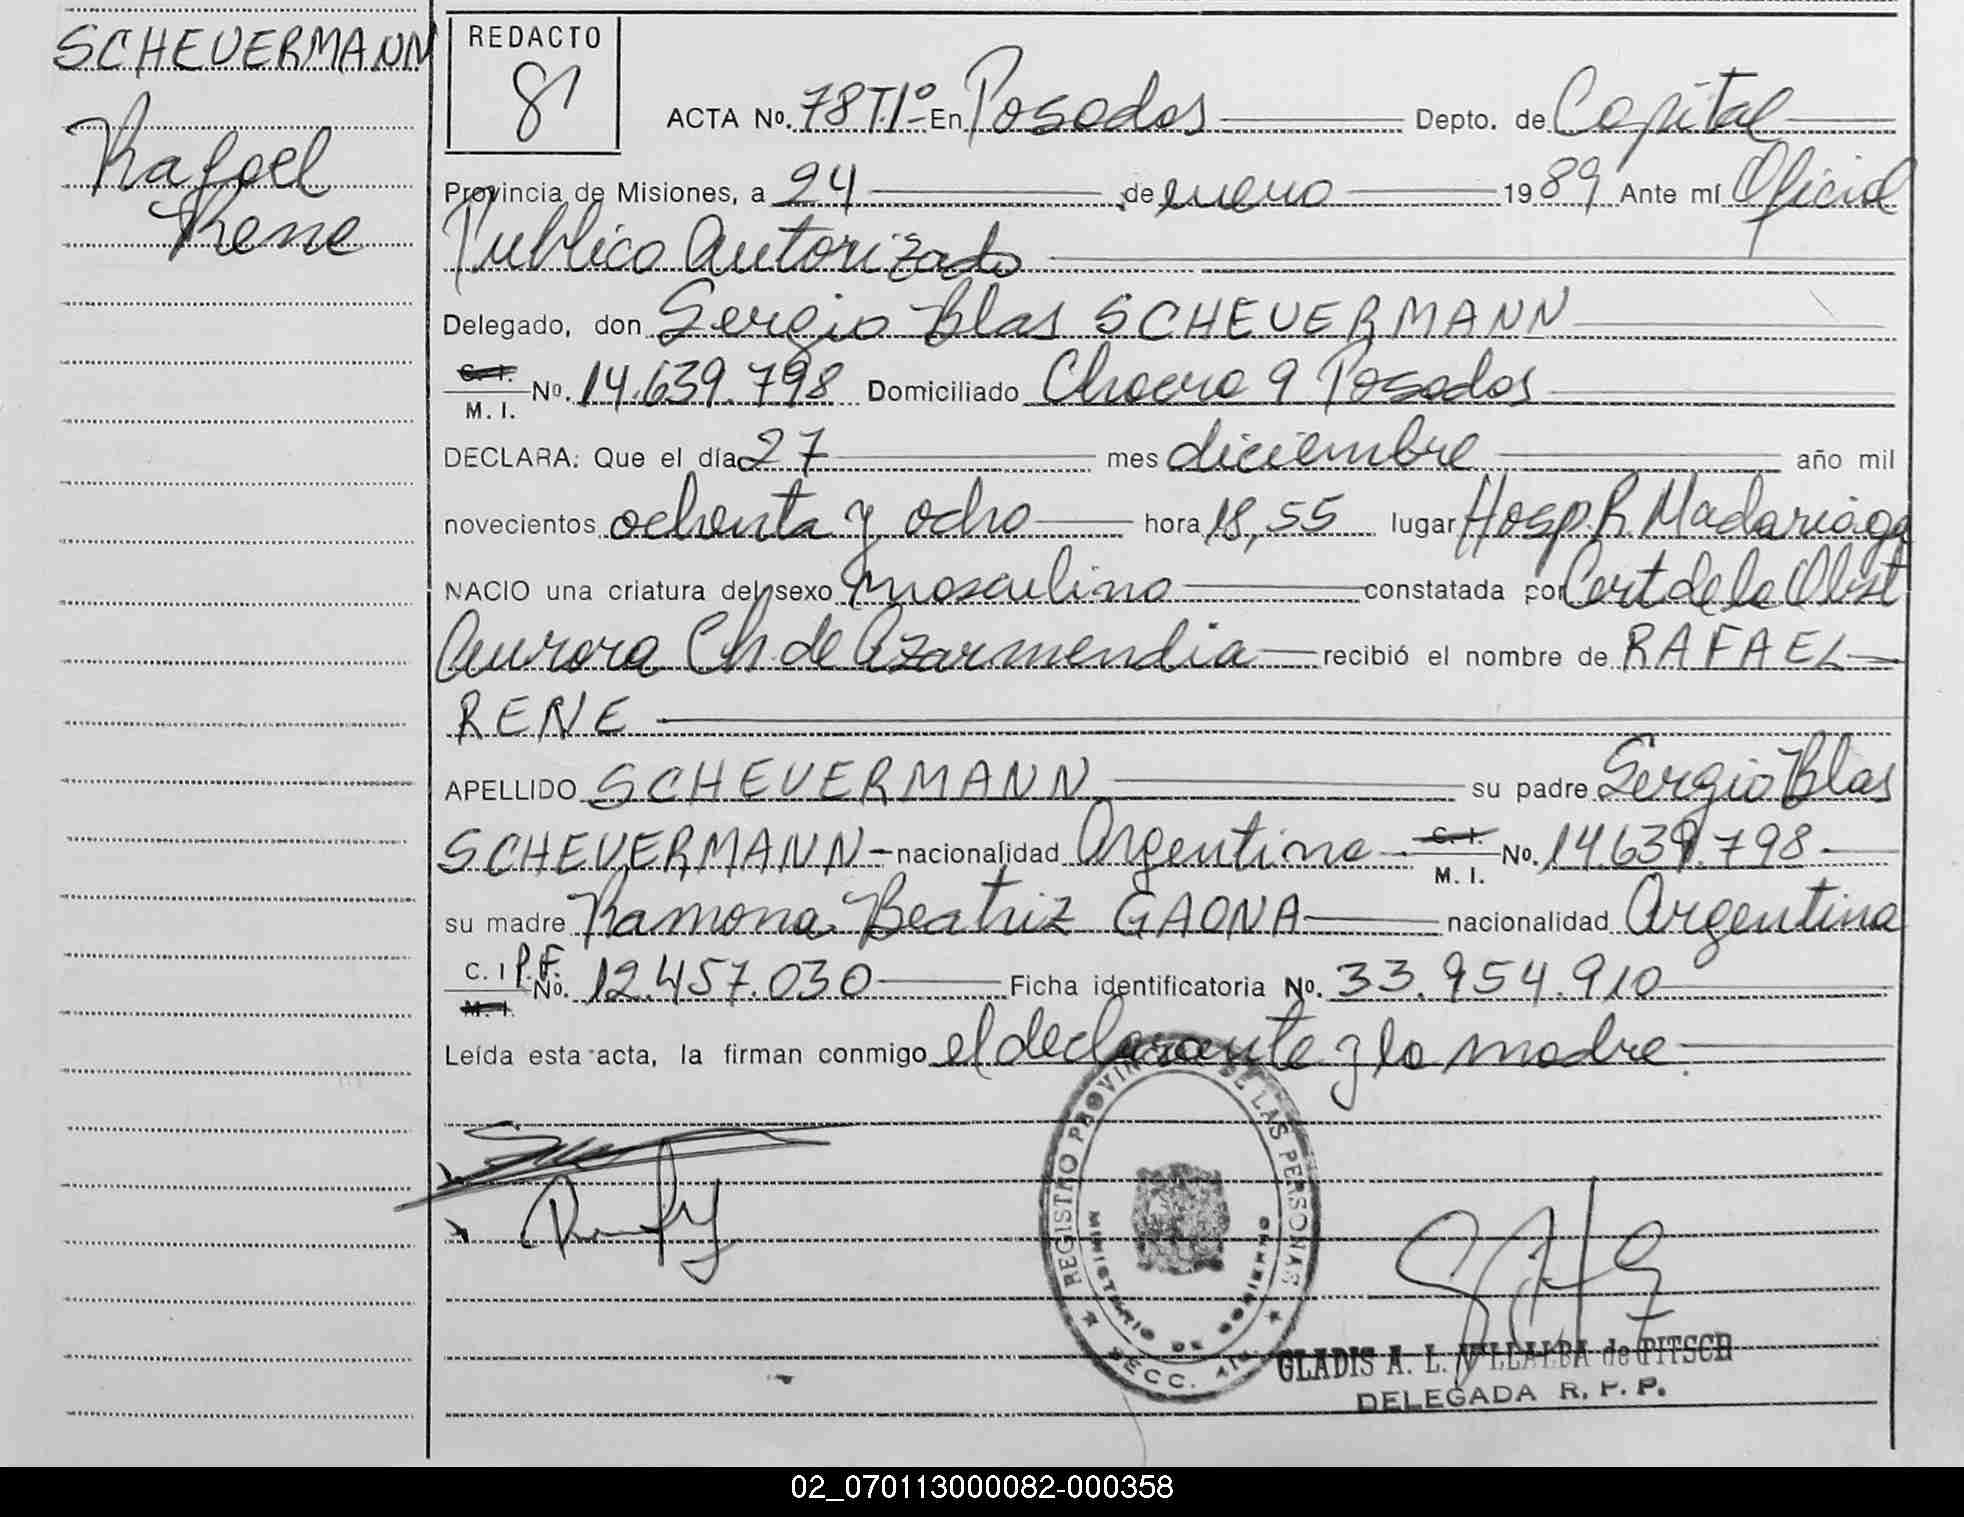 SCHEUERMANN
Rafael
Rene
REDACTO
81
ACTA No. 78 T.1º En Posadas Depto. de Capital
Provincia de Misiones, a 24 de enero 1989 Ante mí Oficial
Publico Autorizado
Delegado, don Sergio Blas SCHEUERMANN
C. I.
M. I. No. 14.639.798 Domiciliado Chacra 9 Posadas
DECLARA: Que el día 27 mes diciembre año mil
novecientos ochenta y ocho hora 18,55 lugar Hosp. R. Madariaga
NACIO una criatura del sexo masculino constatada por Cert de la Obst
Aurora Ch. de Azarmendia recibió el nombre de RAFAEL
RENE
APELLIDO SCHEUERMANN su padre Sergio Blas
SCHEUERMANN nacionalidad Argentina C. I. M. I. No. 14.639.798
su madre Ramona Beatriz GAONA nacionalidad Argentina
C. I P.F. M. I. No. 12.457.030 Ficha identificatoria No. 33.954.910
Leída esta acta, la firman conmigo el declarante y la madre
REGISTRO PROVINCIAL DE LAS PERSONAS
MINISTERIO DE GOBIERNO
SECC. 4ta.
GLADIS A. L. VILLALBA de PITSCH
DELEGADA R. P. P.
02_070113000082-000358